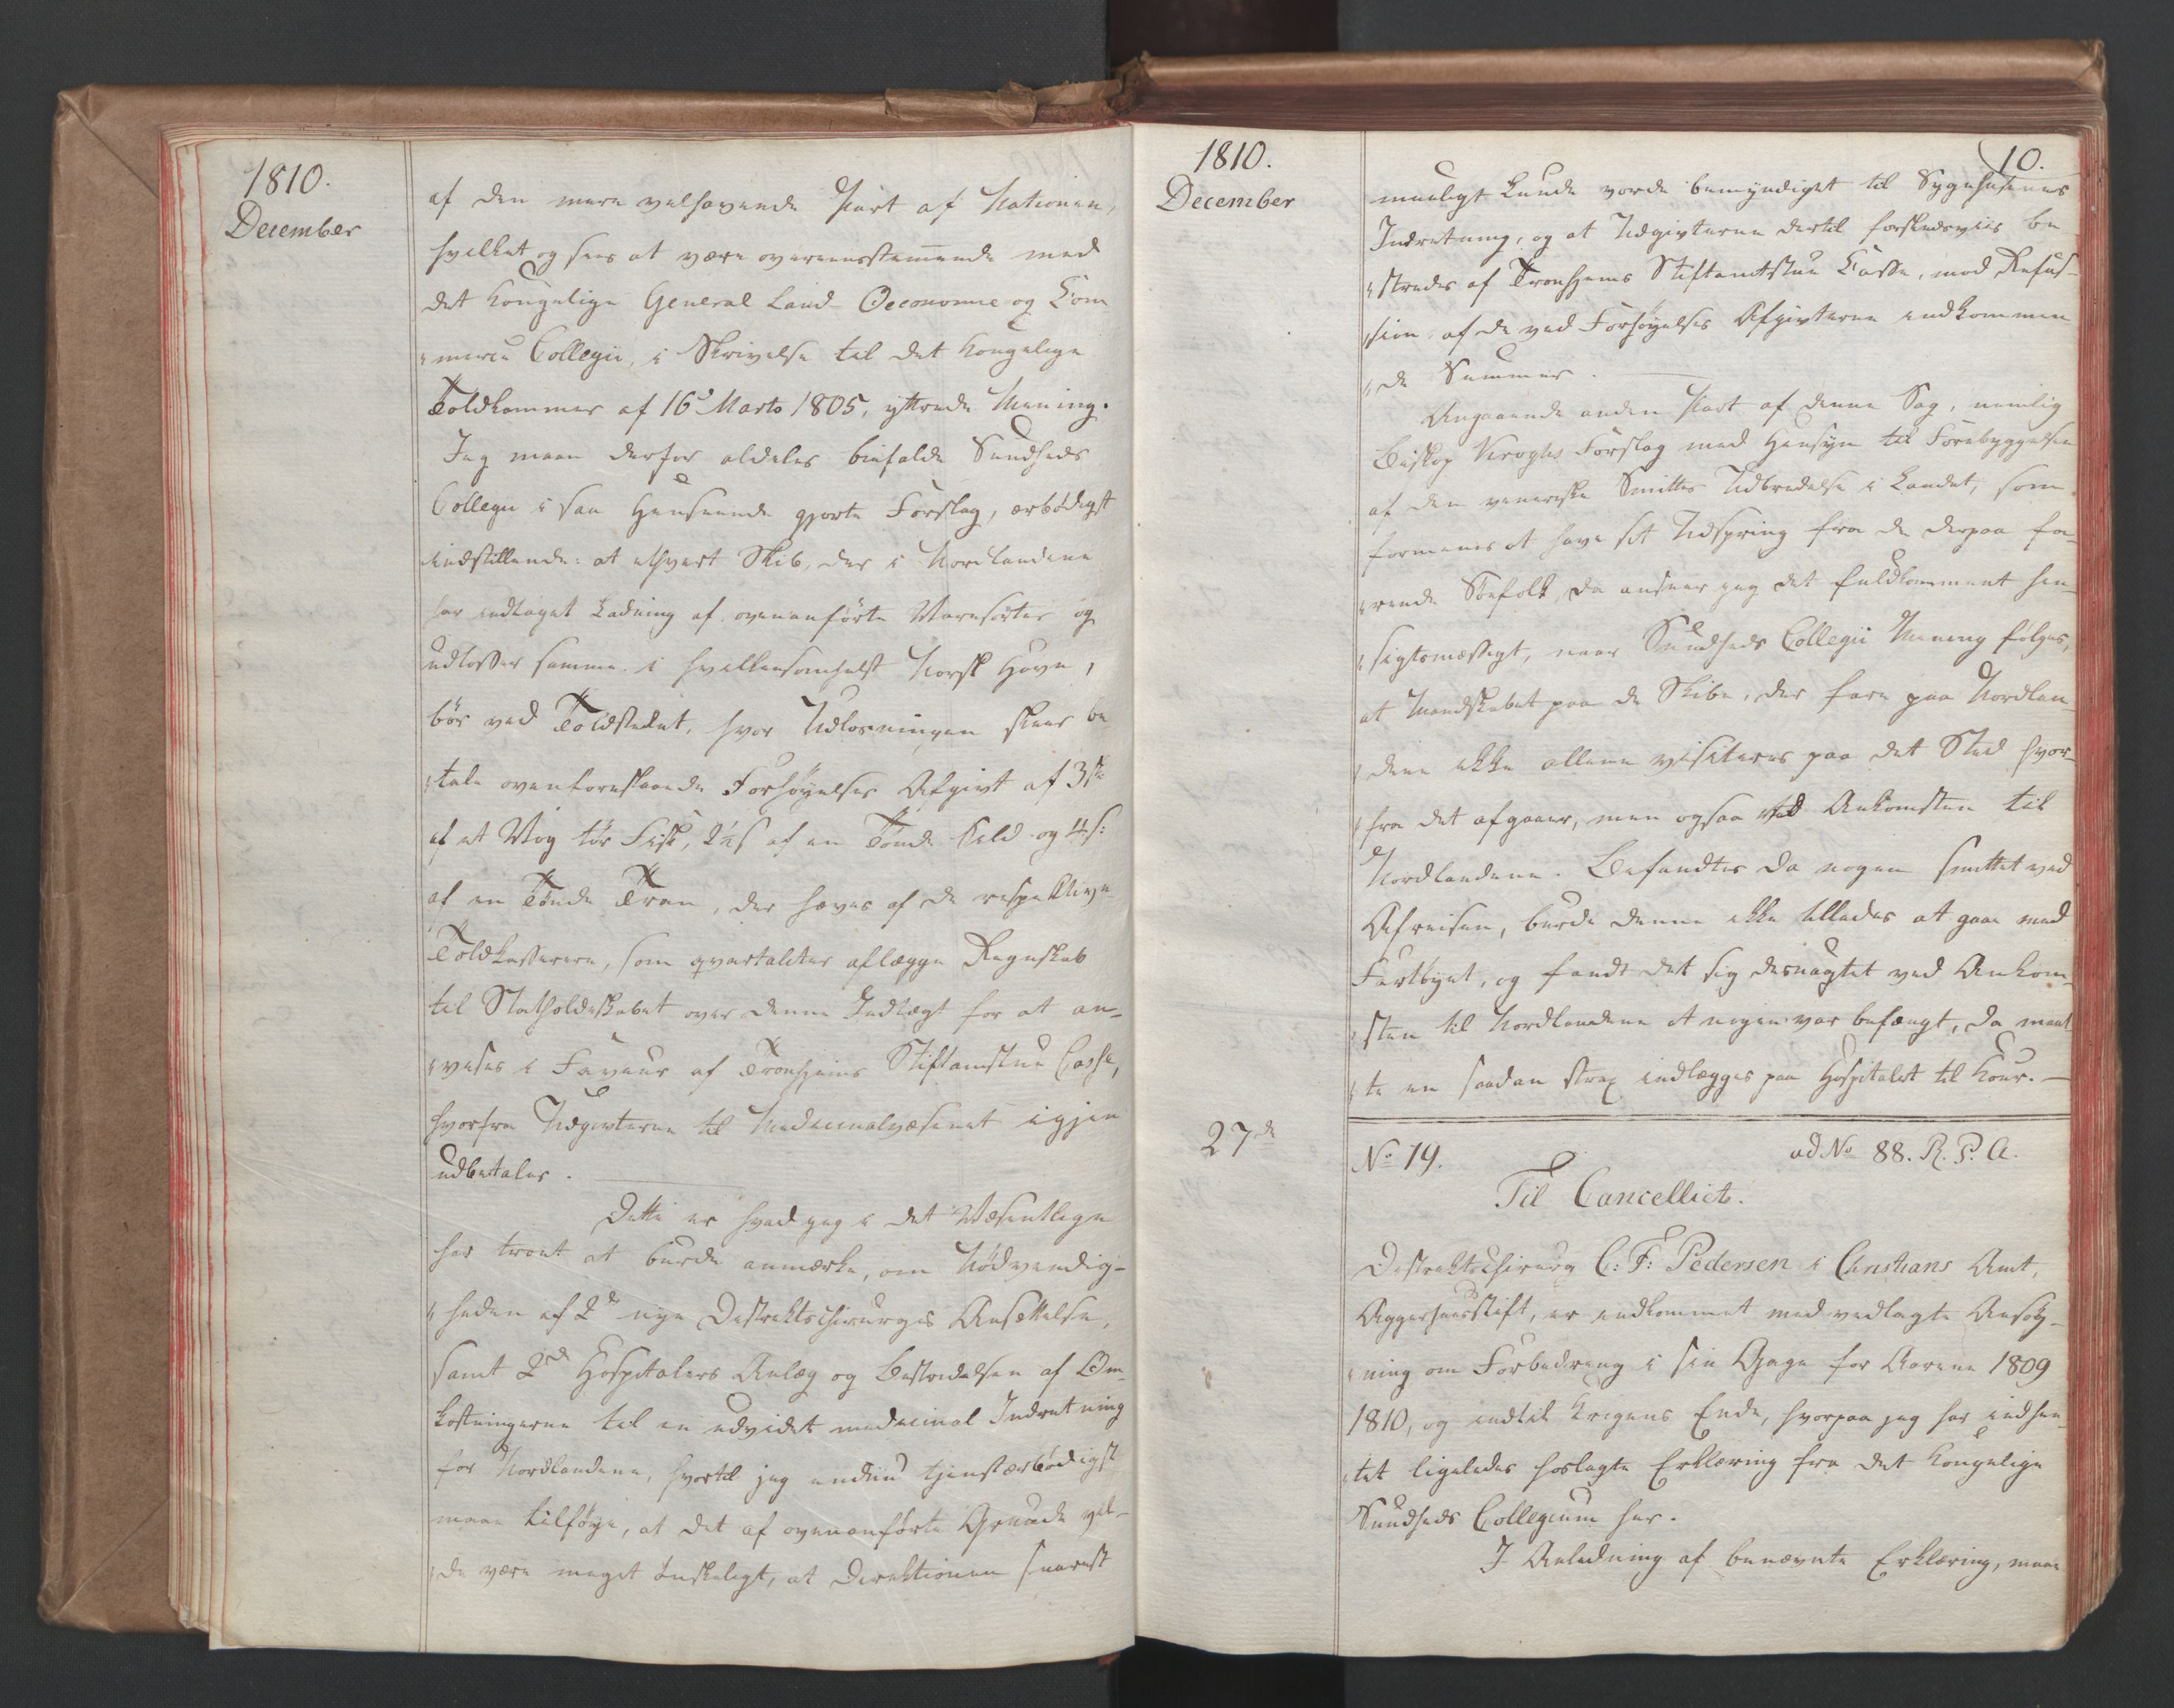 1810.
December
af den mere velhavende Part af Nationen,
hvilket og saaes at være overeensstemmende med
det kongelige General Land-Oeconomie og Com
„merce Collegii, i Skrivelse til det kongelige
Toldkammer af 16d Marts 1805, yttrede Mening.
Jeg maae derfor aldeles bifalde Sundheds
Collegii i saa Henseende gjorte Forslag, ærbødigst
indstillende: at ethvert Skib, der i Nordlandene
har indtaget Ladning af ovenanførte Varesorter og
udlosser samme i hvilkensomhelst Norsk Havn,
bør ved Toldstedet, hvor Udlosningen skeer be
„tale ovenforeslaaede Forhøyelses Afgivt af 3 s
af et Vog tør Fisk, 2½ s af en Tønde Sild og 4 s:
af en Tønde Tran, der hæves af de respective
Toldkasserere, som qvartaliter aflægge Regnskab
til Statholderskabet over denne Indtægt for at an-
„vises i Faveur af Tronhjems Stiftamtstue Casse,
hvorfra Udgivterne til Medicinalvæsenet igjen
udbetales.
Dette er hvad jeg i det Væsentlige
har troet at burde anmærke, om Nødvendig-
„heden af 2de nye Distriktschirurgers Ansættelse,
samt 2de Hospitalers Anlæg og Bestridelsen af Om-
kostningerne til en udvidet medicinal Indretning
for Nordlandene, hvortil jeg endnu tjenstærbødigst
maae tilføye, at det af ovenanførte Grunde vil-
„de være meget ønskeligt, at Direktionen snarest
1810.
December
10.
mueligt kunde vorde bemyndiget til Sygehusenes
Indretning, og at Udgivterne dertil forskudsviis be
„strides af Tronhjems Stiftamtstue Casse, mod Refus-
„sion af de ved Forhøyelses Afgivterne indkommen
„de Summer.
Angaaende anden Part af denne Sag, nemlig
Biskop Kroghs Forslag med Hensyn til Forebyggelsen
af den veneriske Smittes Udbredelse i Landet, som
formenes at have sit Udspring fra de derpaa fa-
„rende Søefolk, da ansaaer jeg det fuldkomment hen-
„sigtsmæssigt, naar Sundheds Collegii Mening følges,
at Mandskabet paa de Skibe, der fare paa Nordlan-
„dene ikke allene visiteres paa det Sted hvor-
„fra det afgaaer, men ogsaa ved Ankomsten til
Nordlandene. Befandtes da nogen smittet ved
Afreisen, burde denne ikke tillades at gaae med
Fartøyet, og fandt det sig desuagtet ved Ankom-
„sten til Nordlandene at nogen var befængt, da maat
„te en saadan strax indlægges paa Hospitalet til Kuur. —
27de
No 19.
ad No 88. R. P. A.
Til Cancelliet.
Distriktschirurg C: F: Pedersen i Christians Amt,
Aggershuusstift, er indkommet med vedlagte Ansøg-
„ning om Forbedring i sin Gage for Aarene 1809
1810, og indtil Krigens Ende, hvorpaa jeg har indhen-
„tet ligeledes hoslagte Erklæring fra det kongelige
Sundheds Collegium her.
I Anledning af benævnte Erklæring, maae